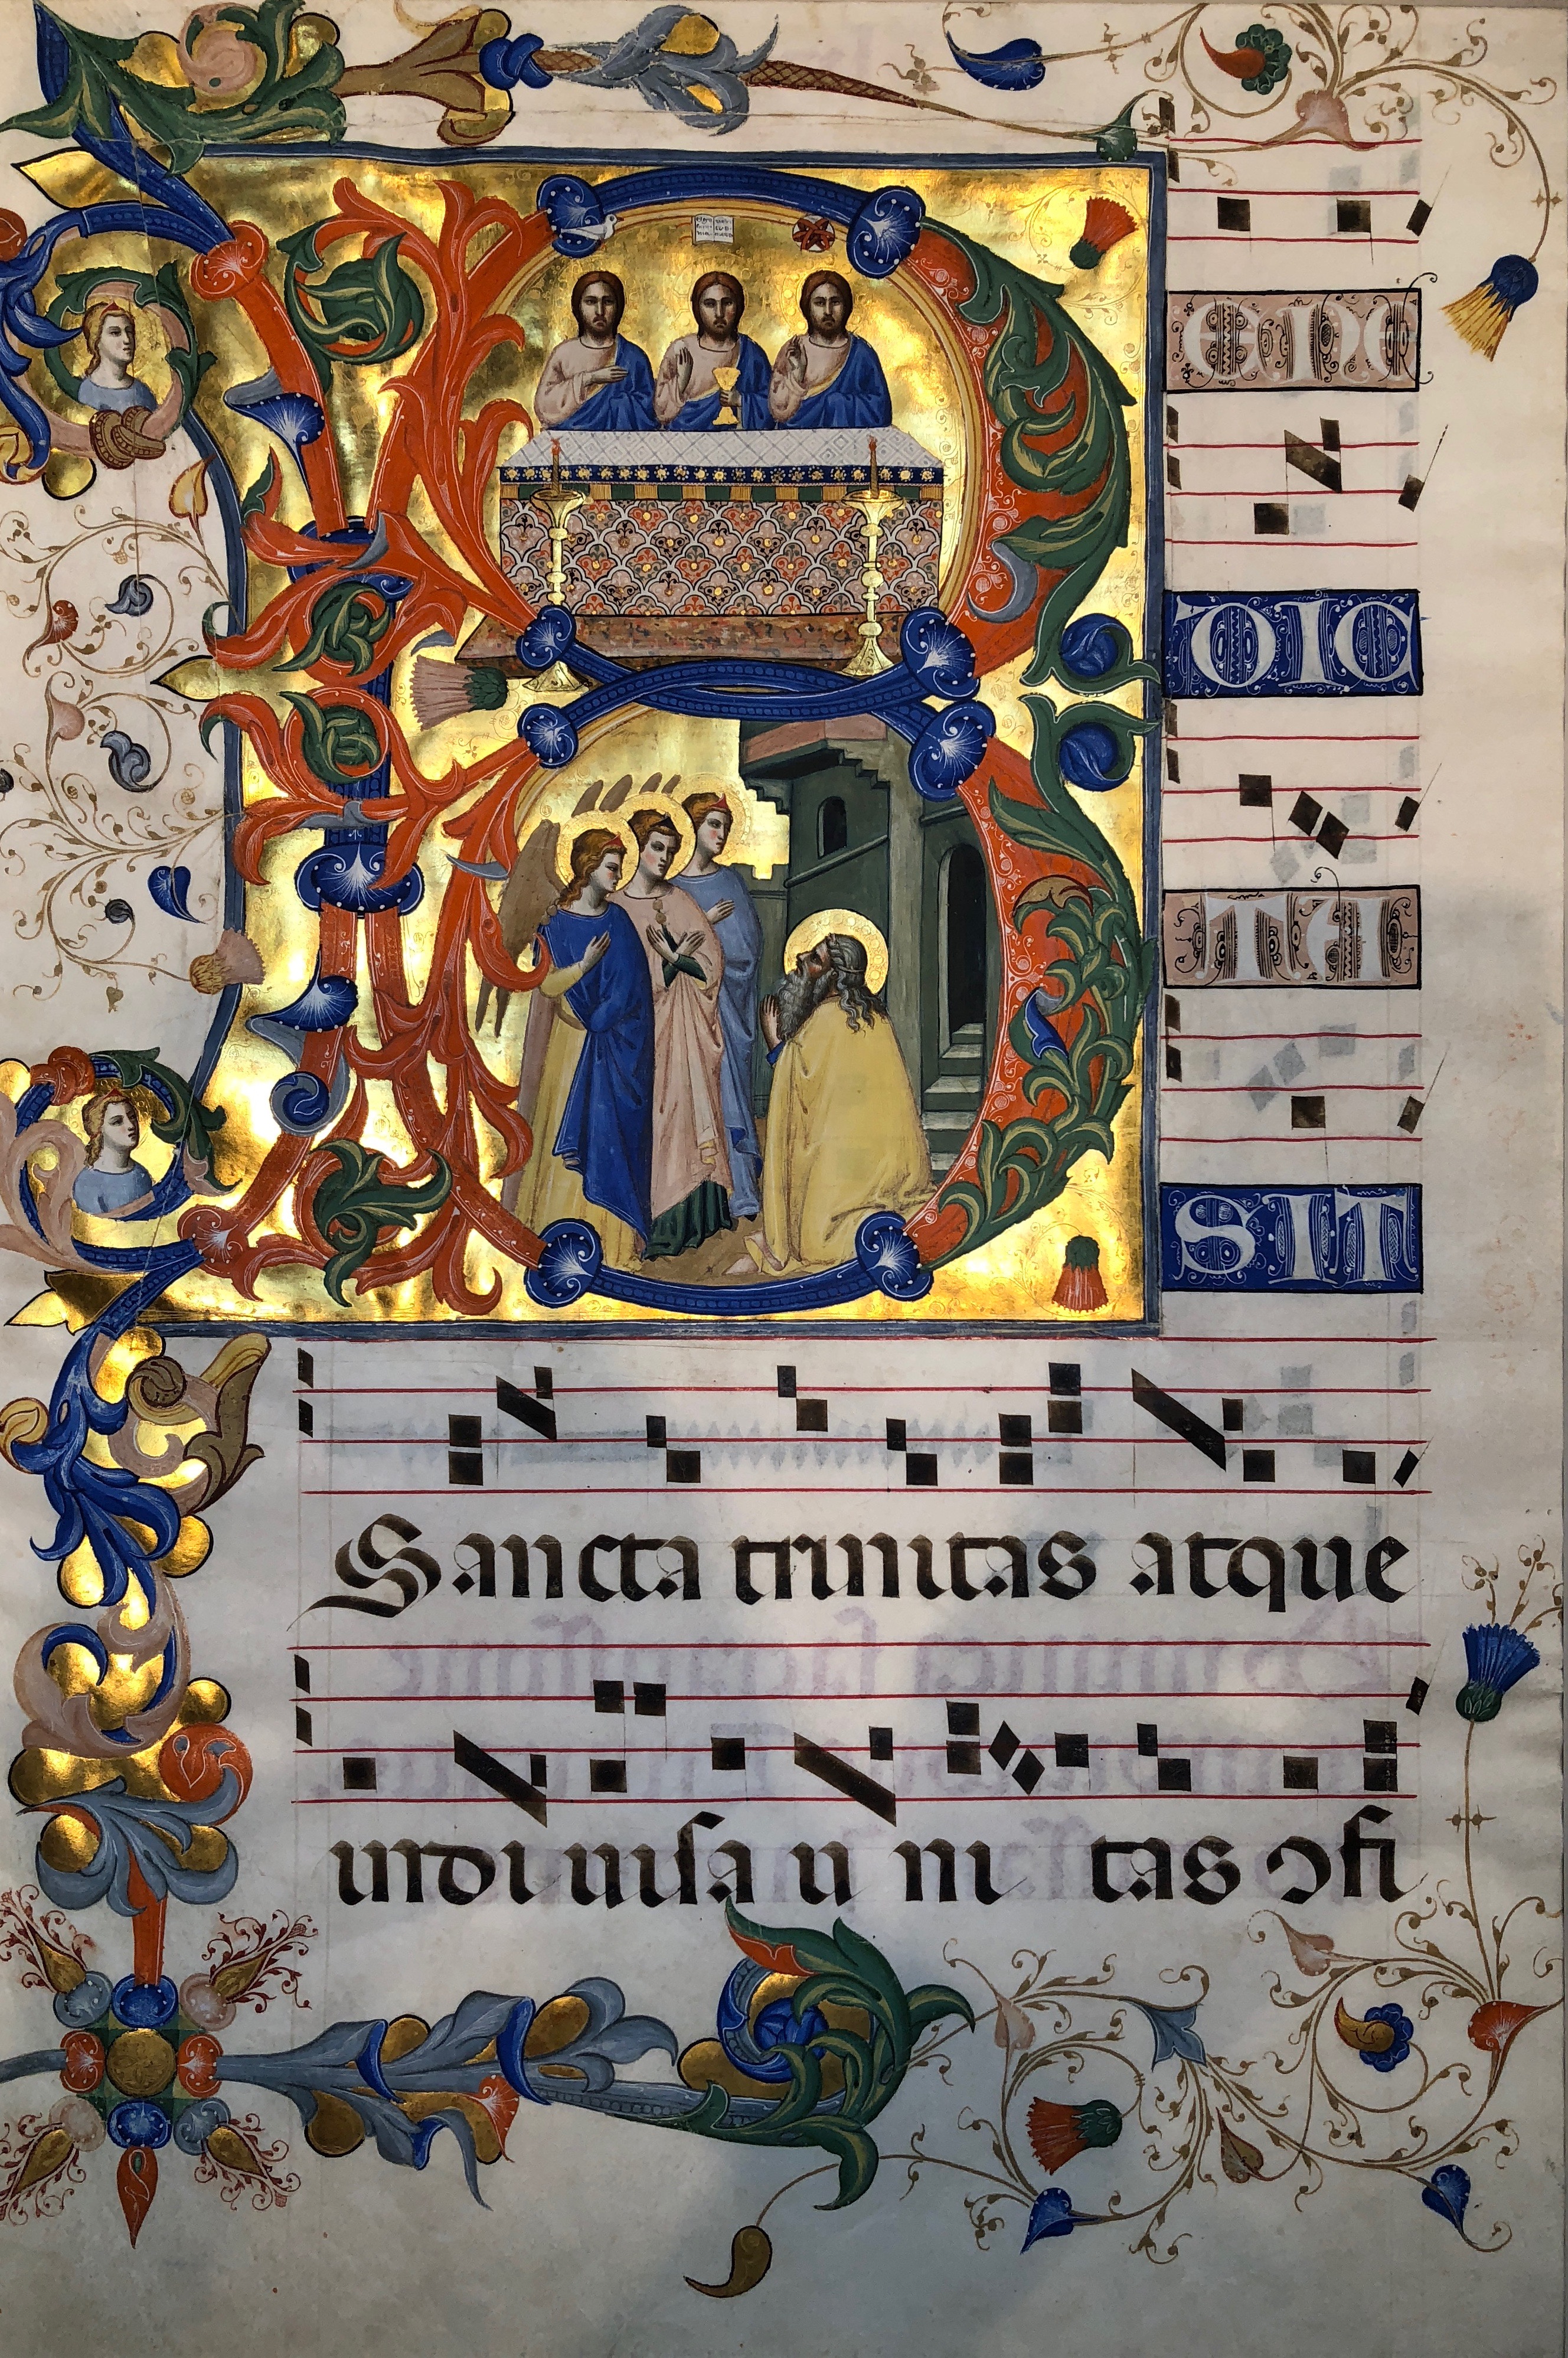 B
ENE
DIC
TA
SIT
Sancta trinitas atque
indiuisa unitas ɔfi